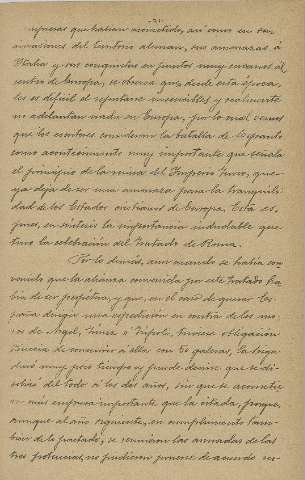 -31-
empresas que habian acometido, así como en sus
invasiones del territorio aleman, sus amenazas á
Italia y sus conquistas en puntos muy cercanos al
centro de Europa, se observa que, desde esta época,
les es difícil el reputarse invencibles y realmente
no adelantan nada en Europa, por lo cual vemos
que los escritores consideran la batalla de Lepanto
como acontecimiento muy importante que señala
el principio de la ruina del Imperio turco, que
ya deja de ser una amenaza para la tranquili-
dad de los Estados cristianos de Europa. Esta es,
pues, en síntesis la importancia indudable que
tuvo la celebración del Tratado de Roma.
Por lo demás, aun cuando se habia con-
venido que la alianza convenida por este tratado ha-
bia de ser perpétua, y que, en el caso de querer Es-
paña dirigir una expedición en contra de los mo-
ros de Argel, Túnez ó Trípoli, tuviese obligación
Venecia de concurrir á ellas con 50 galeras, la liga
duró muy poco tiempo y puede decirse que se di-
solvió del todo á los dos años, sin que se acometie-
ra más empresa importante que la citada, porque,
aunque al año siguiente, en cumplimiento tam-
bien de lo pactado, se reunieron las armadas de las
tres potencias, no pudieron ponerse de acuerdo res-